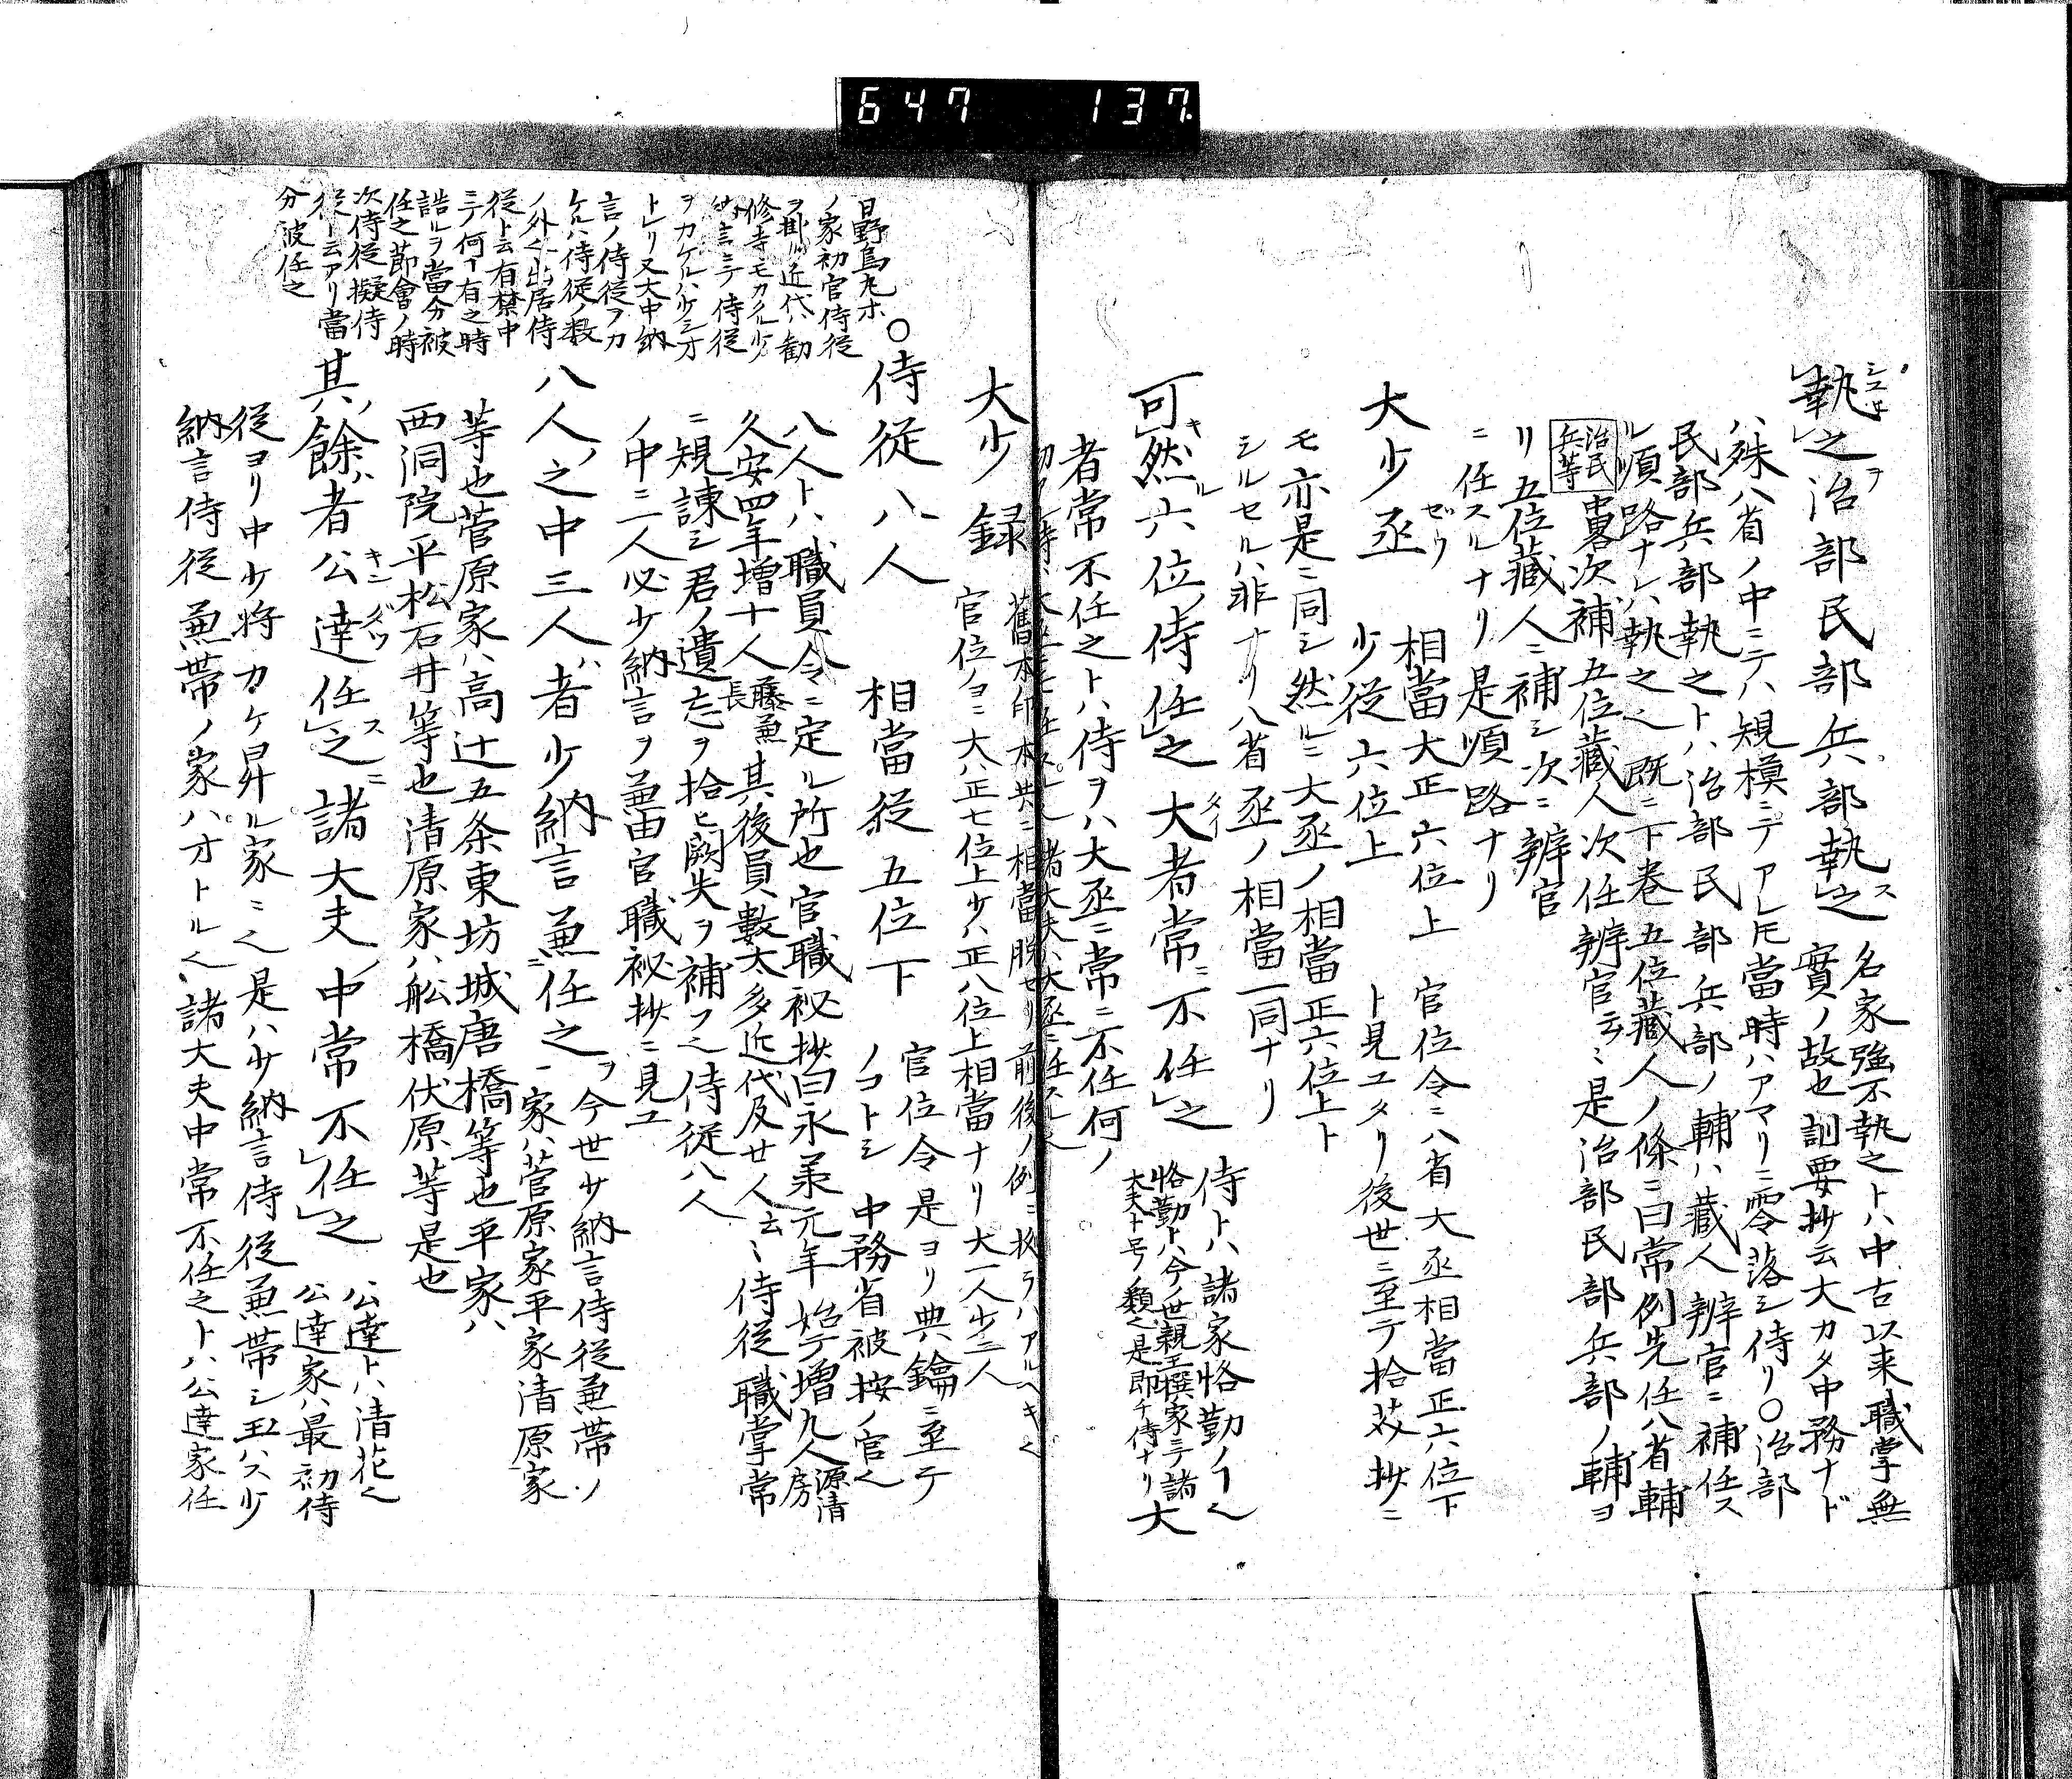 647 137
執之治部民部兵部執之 名家強不執之トハ中古以来職掌無
實ノ故也訓要抄云大カタ中務ナド
ハ殊八省ノ中ニテハ規模ニテアレ𪜈當時ハアマリニ零落シ侍リ〇治部
民部兵部執之トハ治部民部兵部ノ輔ハ藏人辨官ニ補任ス
ル順路ナレハ執之也既ニ下巻五位藏人ノ條ニ曰常例先任八省輔
治民兵等 中畧次補五位藏人次任辨官云〻是治部民部兵部ノ輔ヨ
リ五位藏人ニ補シ次ニ辨官
ニ任スルナリ是順路ナリ
大少丞 相當大正六位上 少從六位上 官位令ニ八省大丞相當正六位下
ト見ユタリ後世ニ至テ拾芥抄ニ
モ亦是ニ同シ然ルニ大丞ノ相當正六位上ト
シルセルハ非ナリ八省丞ノ相當一同ナリ
可然六位侍任之大者常不任之 侍トハ諸家恪勤ノ也
恪勤トハ今ノ世親王摂家ニテ諸
大夫ト号ノ類也是即チ侍ナリ 大
者常不任之トハ侍ヲハ大丞ニ常ニ不任何ノ
大少録 舊本印本共ニ相當脱セリ前後ノ例ニ
官位ノヨニ大ハ正七位上少ハ正八位上相當ナリ大一人少三人
〇侍従八人 相當従五位下 官位令是ヨリ典鑰ニ至テ
ノコトシ 中務省被按ノ官也
八人トハ職員令ニ定ル所也官職秘抄曰永承元年始テ増九人源清房
久安四年増十人藤兼長其後員數太多近代及廿人云〻侍従職掌常
ニ規諫シ君ノ遺忘ヲ拾ヒ闕失ヲ補フ也侍従八人
ノ中ニ二人必少納言ヲ兼由官職秘抄ニ見ユ
八人之中三人者少納言兼任之 今世少納言侍従兼帯ノ
家ハ菅原家平家清原家
等也菅原家ハ高辻五条東坊城唐橋等也平家ハ
西洞院平松石井等也清原家ハ舩橋伏原等是也
其餘者公達任之諸大夫中常不任之 公達トハ清花也
公達家ハ最初侍
従ヨリ中少将カケ昇ル家ニ也是ハ少納言侍従兼帯シ玉ハス少
納言侍従兼帯ノ家ハオトル也諸大夫中常不任之トハ公達家任
日野烏丸ホ
ノ家初官侍従
ヲ掛ル近代ハ勧
修寺モカクル少
納言ニテ侍従
ヲカケルハ少シオ
トレリ又大中納
言ノ侍従ヲカ
ケルハ侍従ノ数
ノ外也出居侍
従ト云有禁中
ニテ何有之時
誥ルヲ當分被
任之節會ノ時
次侍従擬侍
従ト云アリ當
分被任之